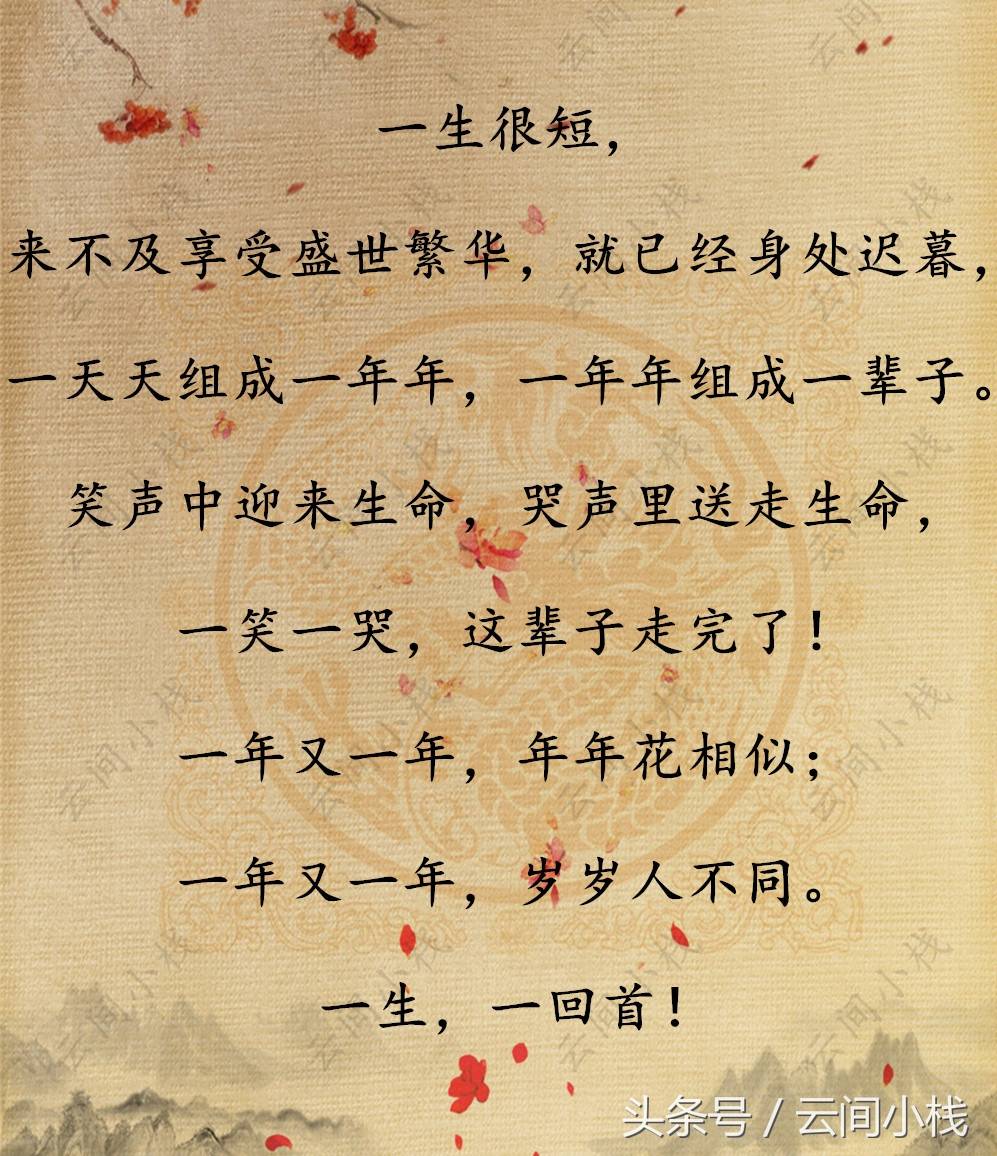 一生很短，
来不及享受盛世繁华，就已经身处迟暮，
一天天组成一年年，一年年组成一辈子。
笑声中迎来生命，哭声里送走生命，
一笑一哭，这辈子走完了！
一年又一年，年年花相似；
一年又一年，岁岁人不同。
一生，一回首！
头条号 / 云间小栈